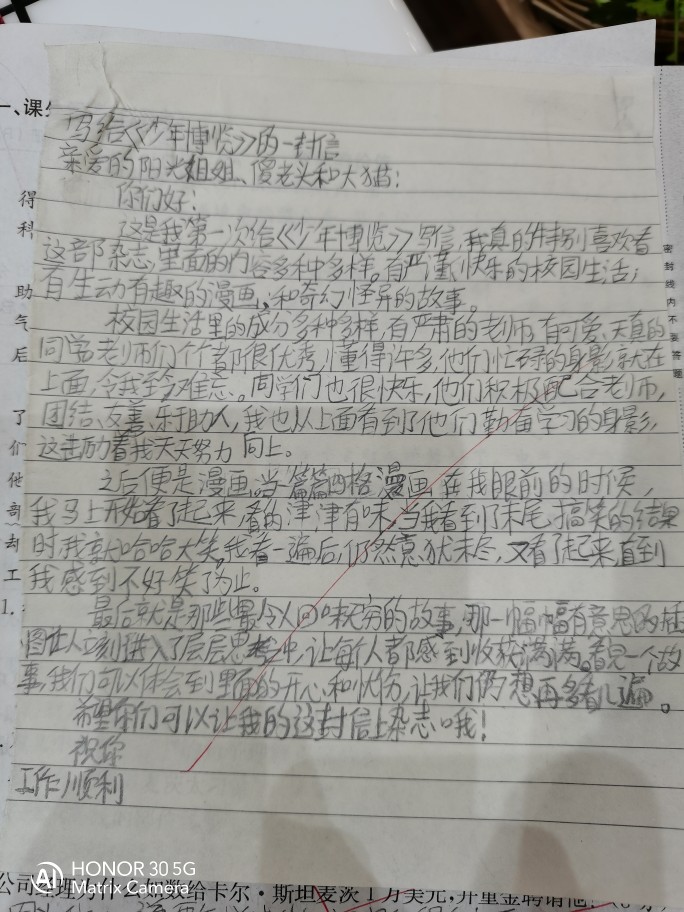 一、课
写给《少年博览》的一封信
亲爱的阳光姐姐、傻老头和大猫:
你们好:
这是我第一次给《少年博览》写信,我真的特别喜欢看
这部杂志,里面的内容多种多样。有严谨、快乐的校园生活;
有生动有趣的漫画,和奇幻怪异的故事。
校园生活里的成分多种多样,有严肃的老师,有可爱、天真的
同学,老师们个个都很优秀,懂得许多,他们忙碌的身影就在
上面,令我至今难忘。同学们也很快乐,他们积极配合老师,
团结、友善、乐于助人,我也从上面看到了他们勤奋学习的身影,
这击励着我天天努力向上。
之后便是漫画,当篇篇四格漫画在我眼前的时候,
我马上开始看了起来,看的津津有味,当我看到了末尾,搞笑的结果
时,我就哈哈大笑。我看一遍后,仍然意犹未尽,又看了起来,直到
我感到不好笑了为止。
最后就是那些最令人回味无穷的故事,那一幅幅有意思的插
图让人立刻进入了层层思考中,让每个人都感到收获满满。看见一个故
事,我们可以体会到里面的开心和忧伤,让我们仍想再多看几遍。
希望你们可以让我的这封信上杂志哦!
祝你
工作顺利
得
科
助
气
后
了
们
他
奇
却
工
1.
密封线内不要答题
公司经理为什么如数给卡尔·斯坦麦茨1万美元,并重金聘请他?
AI HONOR 30 5G
Matrix Camera